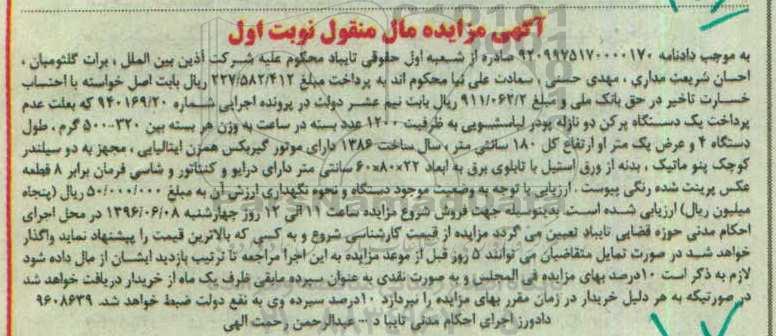 آگهی مزایده مال منقول نوبت اول
به موجب دادنامه ۹۲۰۹۹۷۵۱۷۰۰۰۰۱۷۰ صادره از شعبه اول حقوقی تایباد محکوم علیه شرکت آذین بین الملل ، برات گلثومیان ،
احسان شریعت مداری ، مهدی حسنی ، سعادت علی نیا محکوم اند به پرداخت مبلغ ۲۲۷/۵۸۲/۴۱۲ ریال بابت اصل خواسته با احتساب
خسارت تاخیر در حق بانک ملی و مبلغ ۹۱۱/۰۶۲/۲ ریال بابت نیم عشر دولت در پرونده اجرایی شماره ۹۴۰۱۶۹/۲۰ که بعلت عدم
پرداخت یک دستگاه پرکن دو نازله پودر لباسشویی به ظرفیت ۱۲۰۰ عدد بسته در ساعت به وزن هر بسته بین ۳۲۰-۵۰۰ گرم ، طول
دستگاه ۴ و عرض یک متر او ارتفاع کل ۱۸۰ سانتی متر ، سال ساخت ۱۳۸۶ دارای موتور گیربکس همزن ایتالیایی ، مجهز به دو سیلندر
کوچک پنو ماتیک ، بدنه از ورق استیل با تابلوی برق به ابعاد ۲۲×۸۰×۶۰ سانتی متر دارای درایو و کنتاتور و شاسی فرمان برابر ۸ قطعه
عکس پرینت شده رنگی پیوست . ارزیابی با توجه به وضعیت موجود دستگاه و نحوه نگهداری ارزش آن به مبلغ ۵۰/۰۰۰/۰۰۰ ریال (پنجاه
میلیون ریال) ارزیابی شده است. بدینوسیله جهت فروش شروع مزایده ساعت ۱۱ الی ۱۲ روز چهارشنبه ۱۳۹۶/۰۶/۰۸ در محل اجرای
احکام مدنی حوزه قضایی تایباد تعیین می گردد مزایده از قیمت کارشناسی شروع و به کسی که بالاترین قیمت را پیشنهاد نماید واگذار
خواهد شد در صورت تمایل متقاضیان می توانند ۵ روز قبل از موعد مزایده به این اجرا مراجعه تا ترتیب بازدید ایشان از مال داده شود
لازم به ذکر است ۱۰درصد بهای مزایده فی المجلس و به صورت نقدی به عنوان سپرده مابقی ظرف یک ماه از خریدار دریافت خواهد شد
در صورتیکه به هر دلیل خریدار در زمان مقرر بهای مزایده را نپردازد ۱۰درصد سپرده وی به نفع دولت ضبط خواهد شد. ۹۶۰۸۶۳۹
دادورز اجرای احکام مدنی تایبا د – عبدالرحمن رحمت الهی